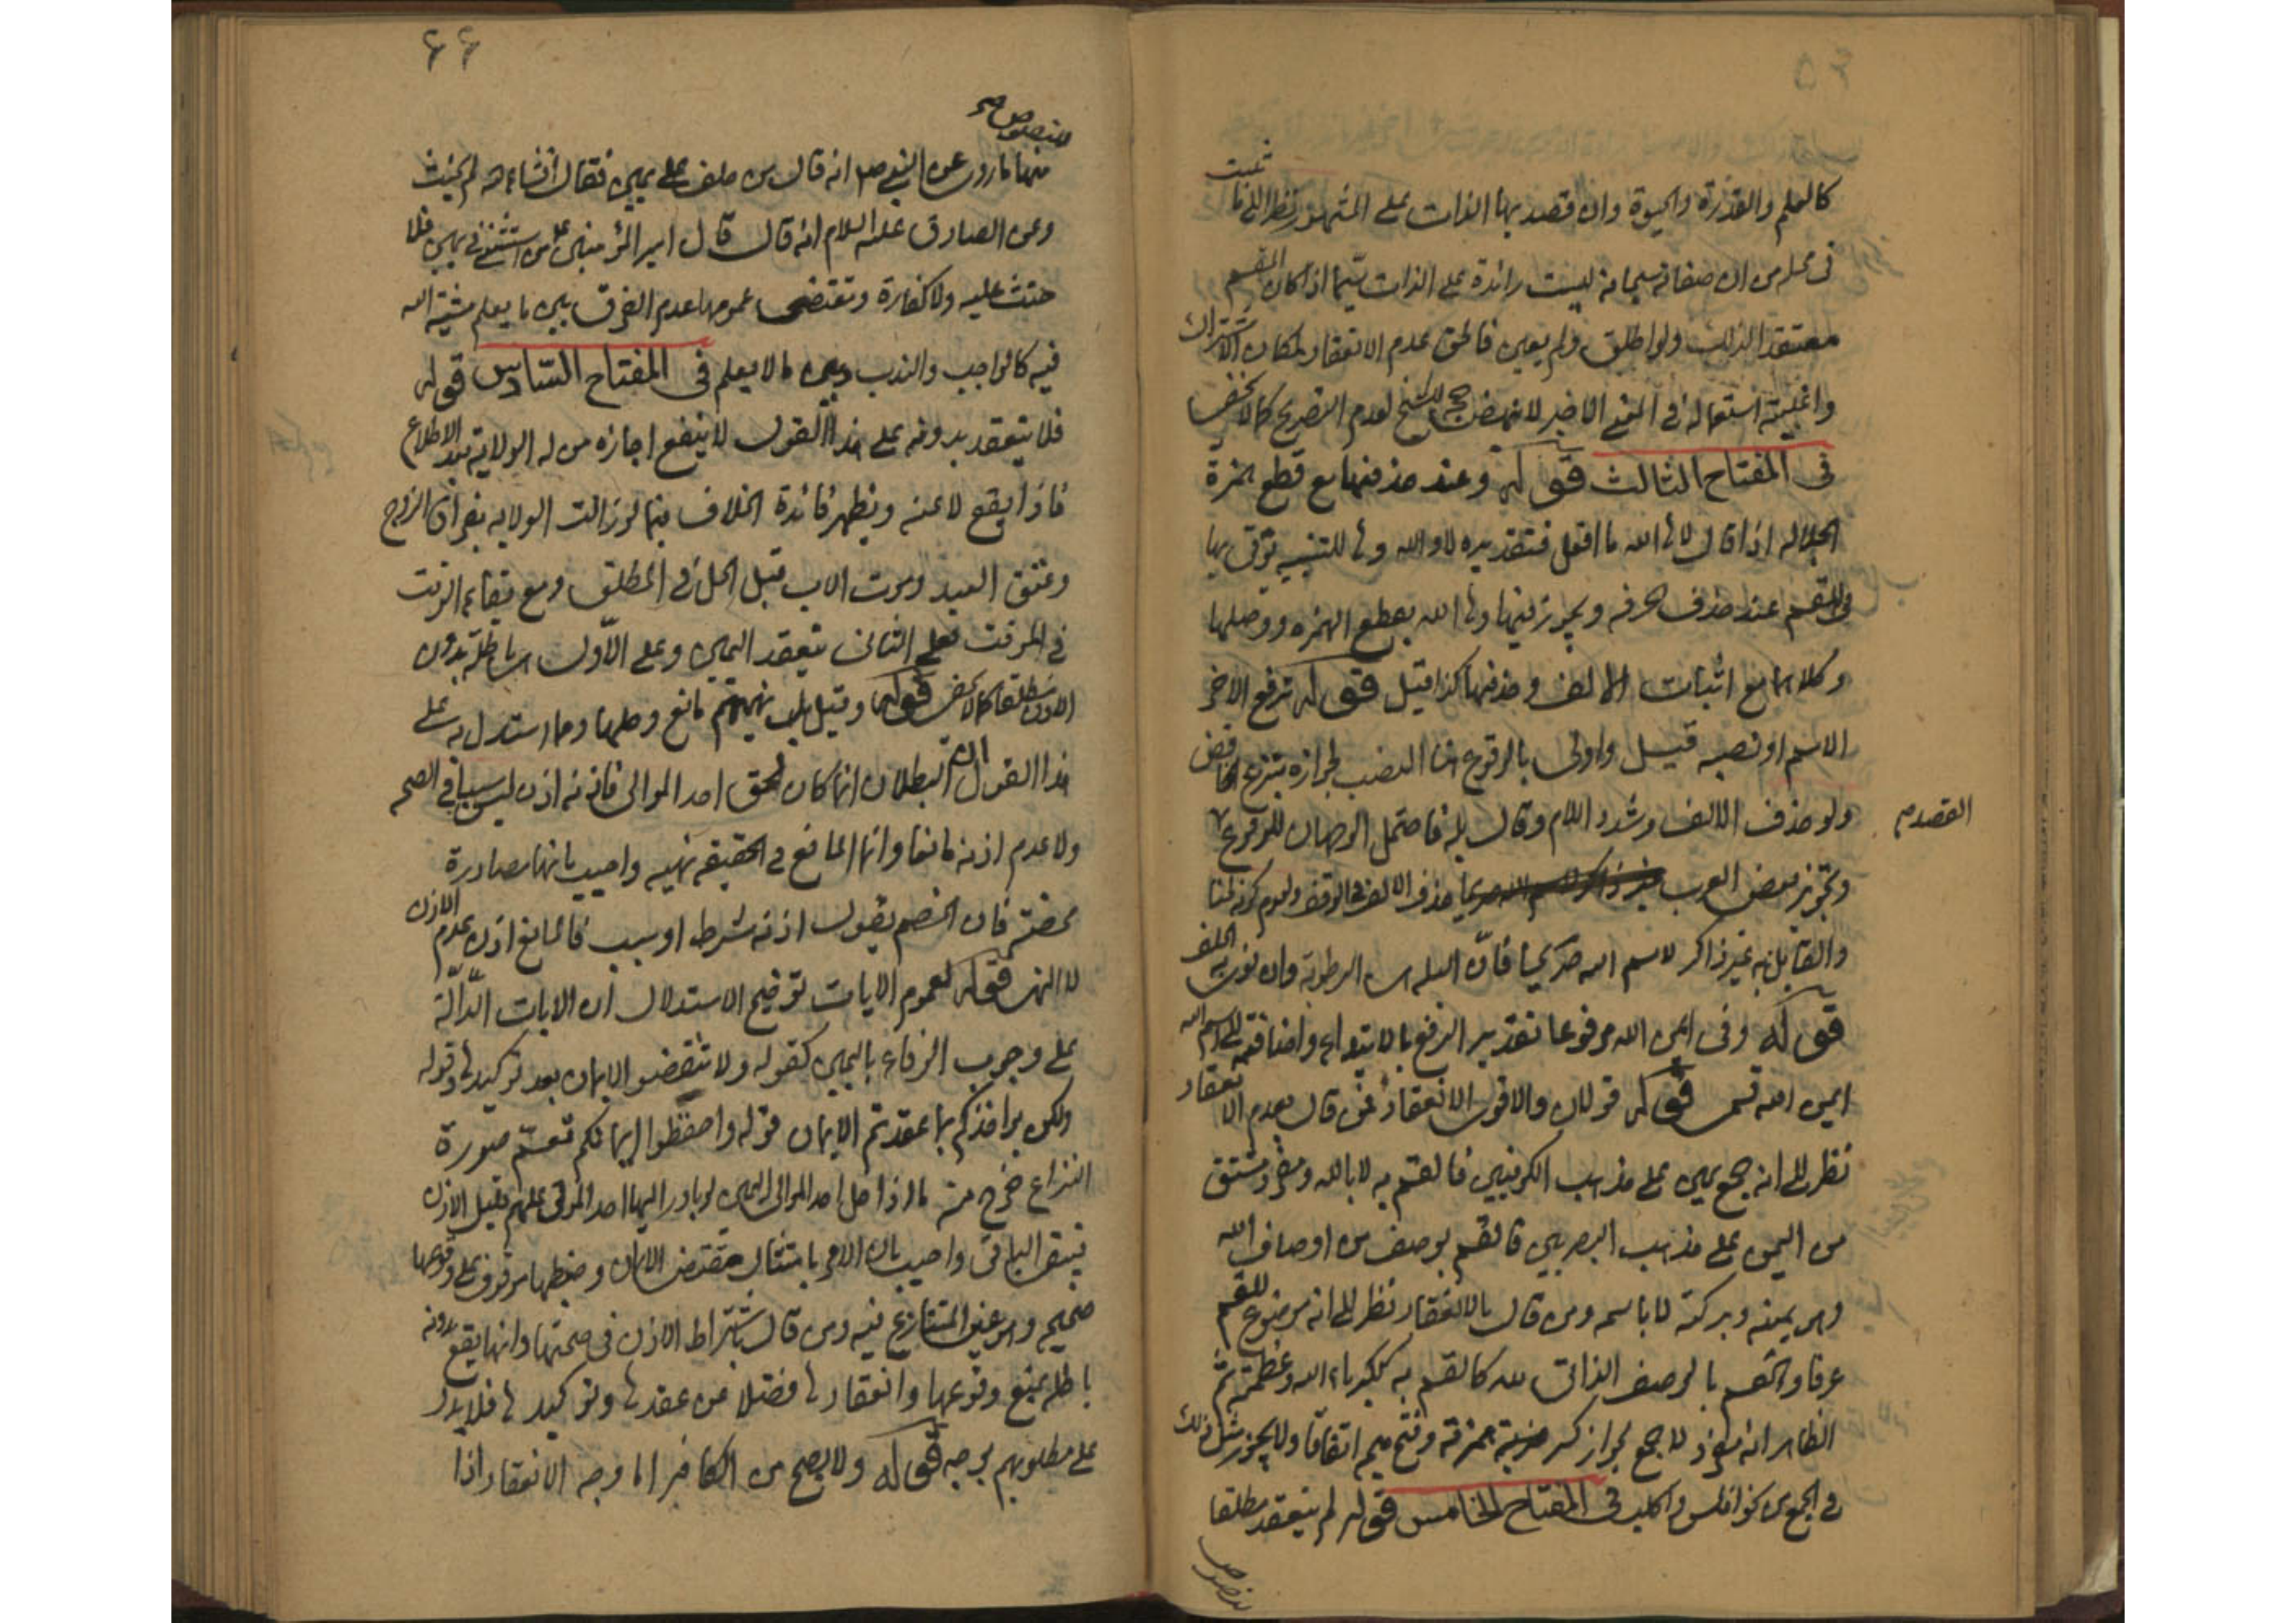 كالعلم والقدرة والحيوة وان قصد بها الذات على المشهور نظرا الى ما ثبت
فى محله من ان صفاته سبحانه ليست زائدة على الذات سيما اذا كان المقسم
معتقد الذلك ولو اطلق ولم يعين فالحق عدم الانعقاد لمكان الاشتراك
واغلبية استعماله فى المعنى الاخير لا تنهض لعدم التصريح كما لا يخفى
فى المفتاح الثالث قوله وعند حذفها مع قطع همزة
الجلالة اذا قال لا ها الله ما افعل فتقديره لا والله وها للتنبيه يؤتى بها
فى القسم عند حذف حرفه ويجوز فيها ها الله بقطع الهمزه ووصلها
وكلاهما مع اثبات الالف وحذفها كذا قيل قوله ترفع الاخر
الاسم او نصبه قيل واولى بالوقوع هنا النصب لجوازه بنزع الخافض
ولو حذف الالف وشدد اللام وقال بله فاحتمل الوجهان للوقوع
القصد
وتجويز بعض العرب حذف الالف فى الوقف ولعدم كونه لحنا
والقائل به غير ذاكر لاسم الله صريحا فان البله هى الرطوبة وان نوى به الحلف
قوله وفى ايمن الله مرفوعا تقدير الرفع بالابتداء واضافته الى اسم الله
ايمن الله قسمى قوله قولان والاقوى الانعقاد فمن قال بعدم الانعقاد
نظر الى انه جمع يمين على مذهب الكوفيين فالقسم به لا بالله ومفرد مشتق
من اليمن على مذهب البصريين فالقسم بوصف من اوصاف الله
وهو يمنه وبركته لا باسمه ومن قال بالانعقاد نظر الى انه موضوع للقسم
عرفا والقسم بالوصف الذاتى لله كالقسم به ككبرياء الله وعظمته ثم
الظاهر انه مفرد لا جمع لجواز كسر همزته وفتح ميمه اتفاقا ولا يجوز مثل ذلك
فى الجمع من نحو افلس واكلب فى المفتاح الخامس قوله لم ينعقد مطلقا
للنصوص
۶۶
للنصوص صح
منها ما روى عن النبى ص انه قال من حلف على يمين فقال انشاء الله لم يحنث
وعن الصادق عليه السلام انه قال قال امير المؤمنين ع من استثنى فى يمين فلا
حنث عليه ولا كفارة وتقتضى عمومها عدم الفرق بين ما يعلم مشية الله
فيه كالواجب والندب وبين ما لا يعلم فى المفتاح السادس قوله
فلا ينعقد بدونه على هذا القول لا ينفع اجازه من له الولاية بعد الاطلاع
فاذا يقع لاغيه ويظهر فائدة الخلاف فيما لو زالت الولايه بفراق الزوج
وعتق العبد وموت الاب قبل الحل فى المطلق ومع بقاء الوقت
فى الموقت فعلى الثانى ينعقد اليمين وعلى الاول هى باطلة بدون
الاذن مطلقا كما لا يخفى قوله وقيل بل نهيهم مانع وحلها وما استدل به على
هذا القول ان البطلان انما كان لحق احد الموالى فانه اذن ليس سببا فى الصحه
ولا عدم اذنه مانعا وانما المانع فى الحقيقه نهيه واجيب بانها مصادرة
محضة فان الخصم يقول اذنه شرط او سبب فالمانع اذن عدم الاذن
لا النهى قوله لعموم الايات توضيح الاستدلال ان الايات الدالة
على وجوب الوفاء باليمين كقوله ولا تنقضوا الايمان بعد توكيدها وقوله
ولكن يؤاخذكم بما عقدتم الايمان قوله واحفظوا ايمانكم تعم صورة
النزاع خرج منه ما اذا حل احد الموالى اليمين لو بادر اليها احد المولى عليهم قبل الاذن
فيبقى الباقى واجيب بان الامر بامتثال مقتضى الايمان وحفظها موقوف على وقوعها
صحيح وهو عين المتنازع فيه ومن قال باشتراط الاذن فى صحتها وانها يقع بدونه
باطله يمنع وقوعها وانعقادها فضلا عن عقدها وتوكيدها فلا يدل
على مطلوبهم بوجه قوله ولا يصح من الكافر اما وجه الانعقاد اذا